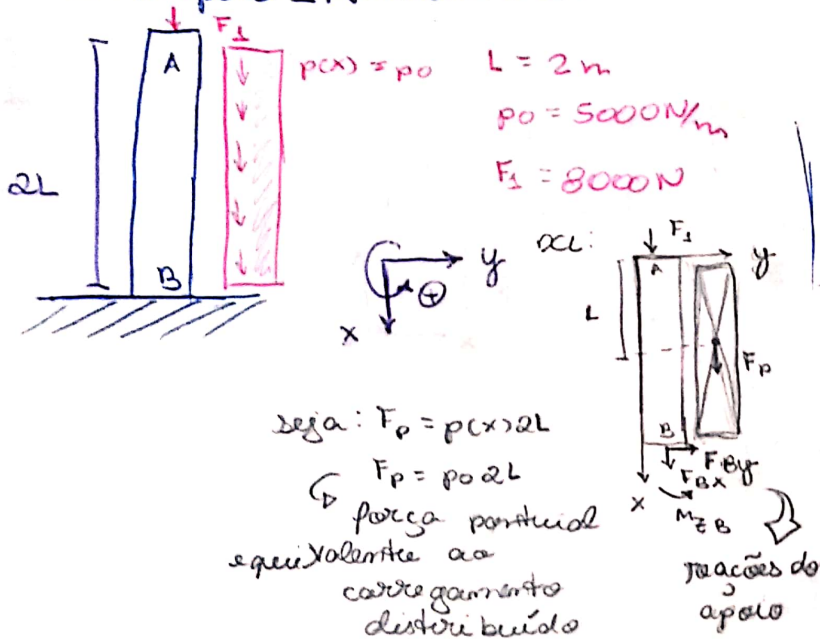 F1
A
p(x) = p0
L = 2m
p0 = 5000N/m
F1 = 8000N
2L
B
y
⊕
x
DCL:
F1
A
y
L
Fp
B
FBy
FBx
x
MZB
seja: Fp = p(x)2L
Fp = p0 2L
força pontual
equivalente ao
carregamento
distribuído
reacões do
apoio